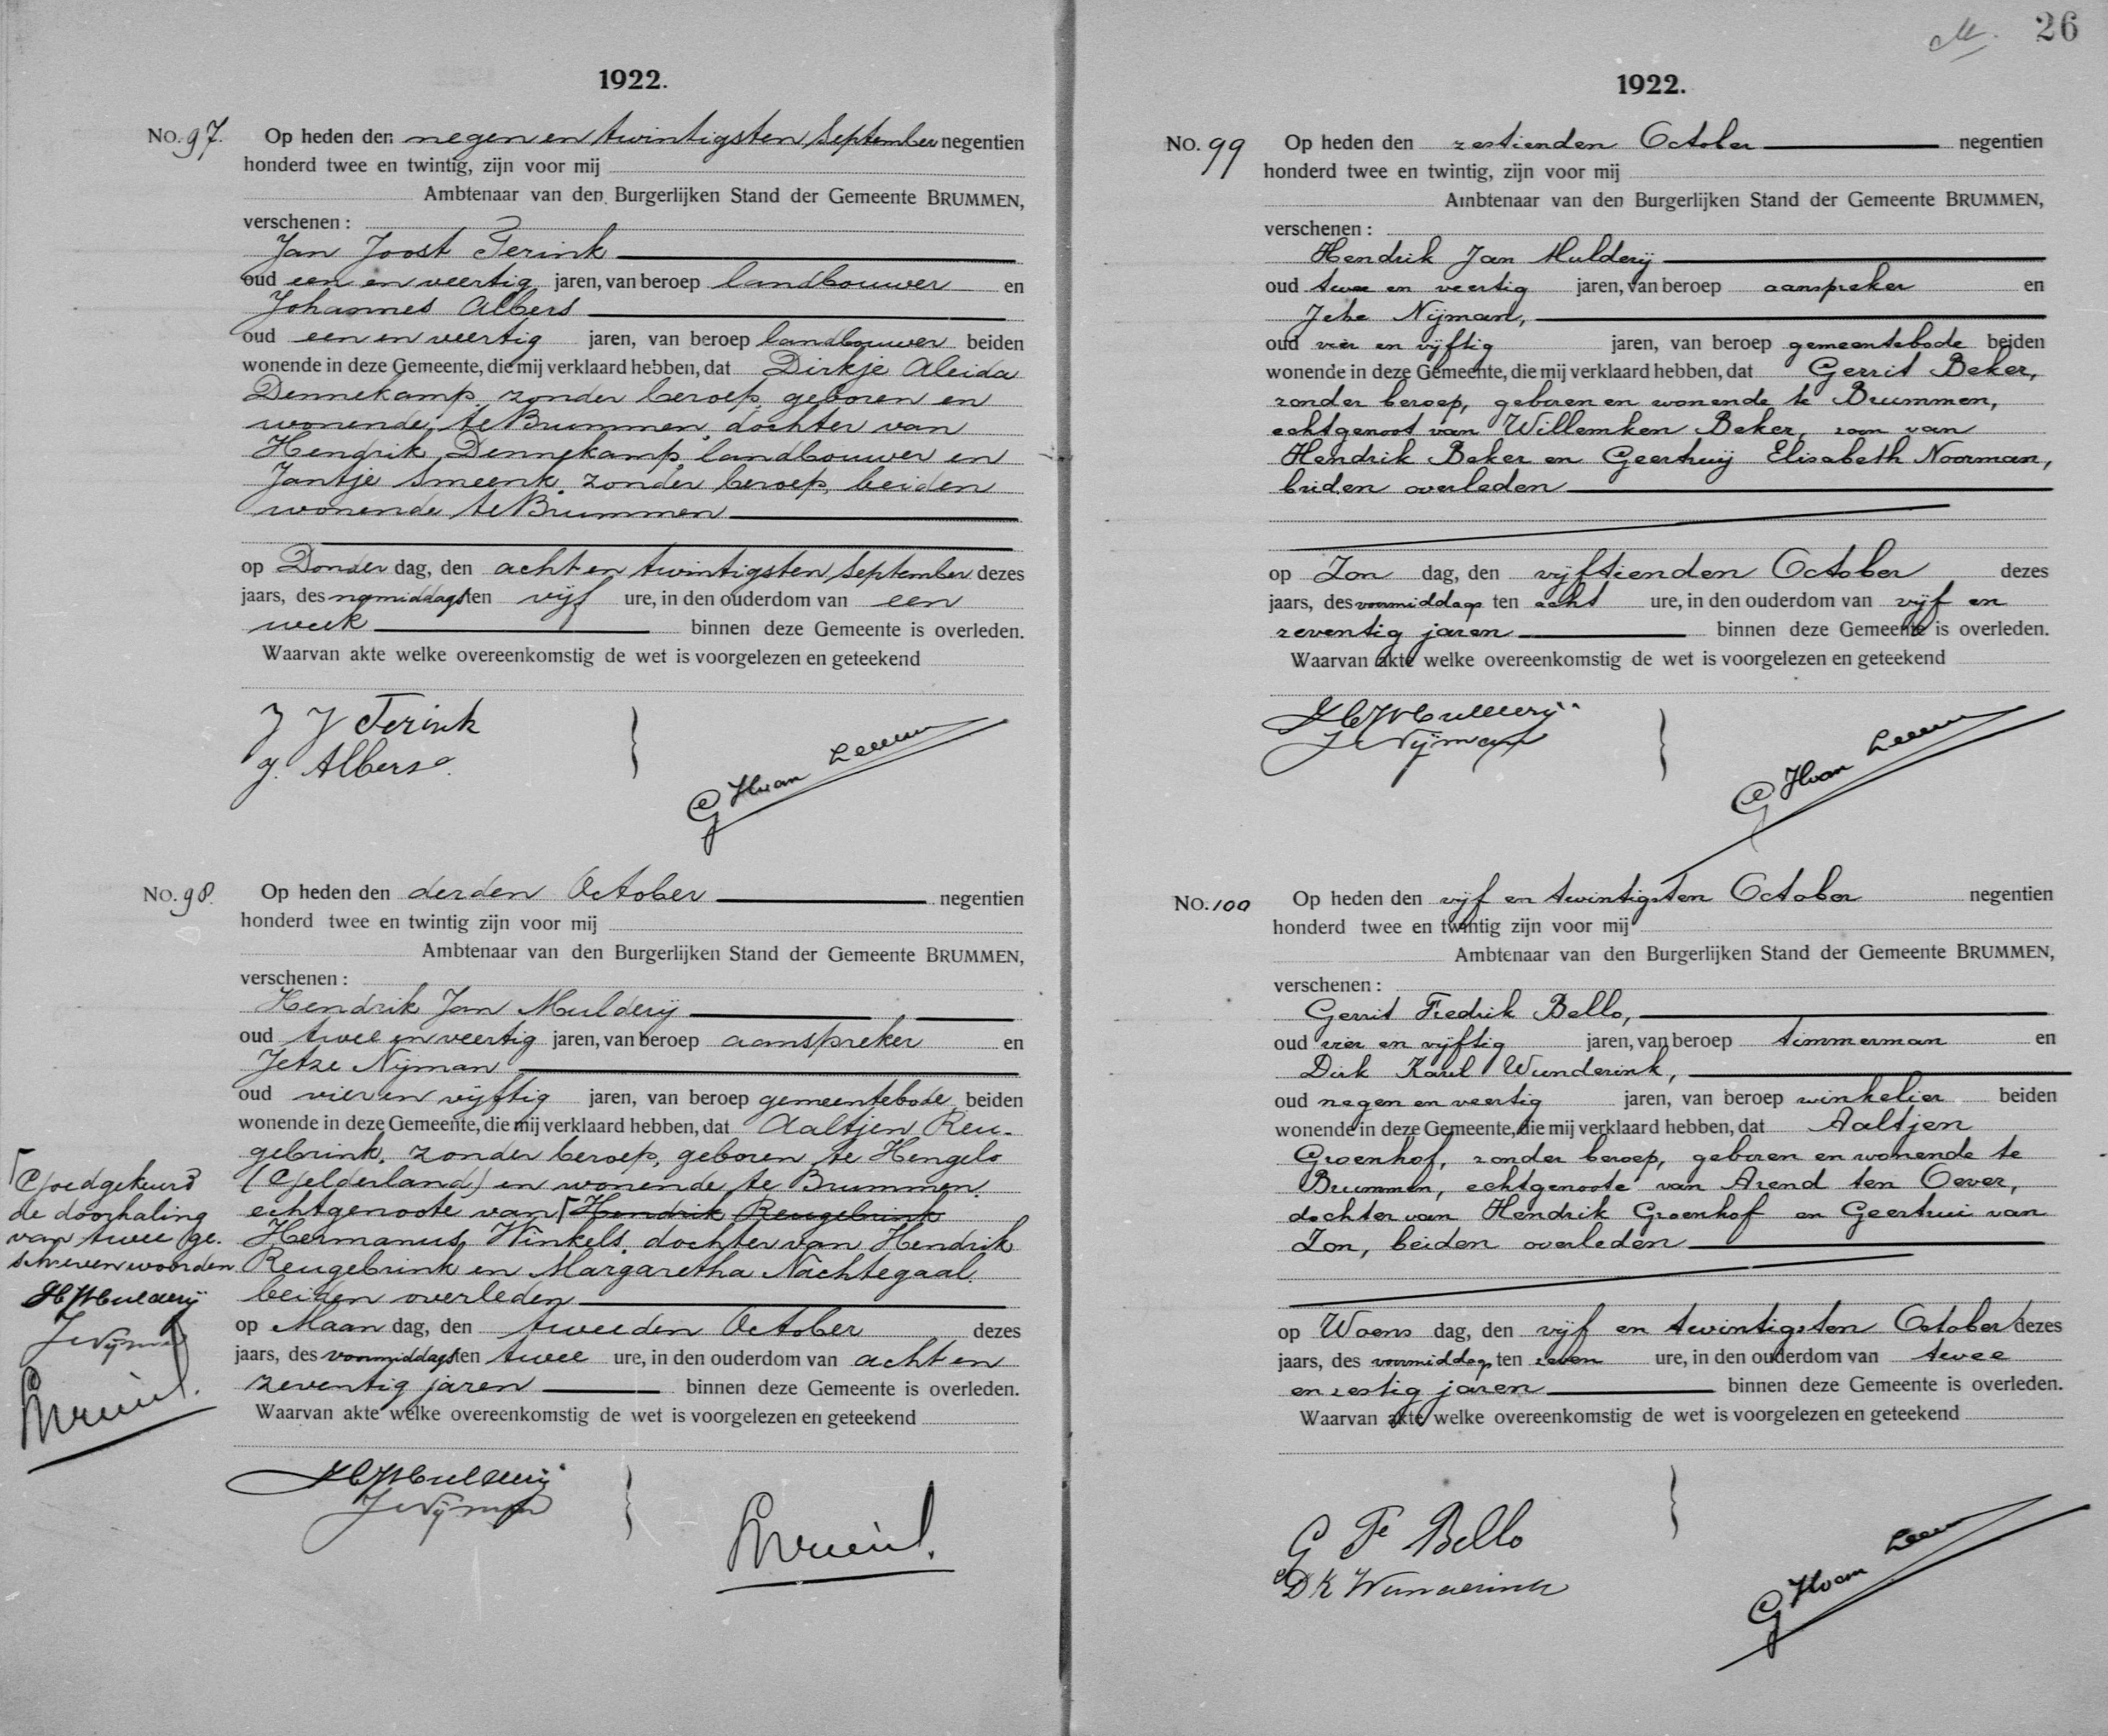 1922.
No. 97. Op heden den negen en twintigsten September negentien
honderd twee en twintig, zijn voor mij
Ambtenaar van den Burgerlijken Stand der Gemeente BRUMMEN,
verschenen :
Jan Joost Terink
oud een en veertig jaren, van beroep landbouwer en
Johannes Albers
oud een en veertig jaren, van beroep landbouwer beiden
wonende in deze Gemeente, die mij verklaard hebben, dat Dirkje Aleida
Dennekamp, zonder beroep, geboren en
wonende te Brummen, dochter van
Hendrik Dennekamp, landbouwer en
Jantje Smeenk, zonder beroep, beiden
wonende te Brummen
op Donder dag, den acht en twintigsten September dezes
jaars, des namiddags ten vijf ure, in den ouderdom van een
week binnen deze Gemeente is overleden.
Waarvan akte welke overeenkomstig de wet is voorgelezen en geteekend
J J Terink
J. Albers.
G H van Leeuw
No. 98. Op heden den derden October negentien
honderd twee en twintig zijn voor mij
Ambtenaar van den Burgerlijken Stand der Gemeente BRUMMEN,
verschenen :
Hendrik Jan Mulderij
oud twee en veertig jaren, van beroep aanspreker en
Jetze Nijman
oud vier en vijftig jaren, van beroep gemeentebode beiden
wonende in deze Gemeente, die mij verklaard hebben, dat Aaltjen Reu-
gebrink, zonder beroep, geboren te Hengelo
(Gelderland) en wonende te Brummen,
echtgenoote van Hendrik Reugebrink
Hermanus Winkels, dochter van Hendrik
Reugebrink en Margaretha Nachtegaal,
beiden overleden
op Maan dag, den tweeden October dezes
jaars, des voormiddags ten twee ure, in den ouderdom van acht en
zeventig jaren binnen deze Gemeente is overleden.
Waarvan akte welke overeenkomstig de wet is voorgelezen en geteekend
Goedgekeurd
de doorhaling
van twee ge-
schreven woorden
HJMulderij
J Nijman
HJMulderij
J Nijman
26
1922.
No. 99 Op heden den zestienden October negentien
honderd twee en twintig, zijn voor mij
Ambtenaar van den Burgerlijken Stand der Gemeente BRUMMEN,
verschenen :
Hendrik Jan Mulderij
oud twee en veertig jaren, van beroep aanspreker en
Jetze Nijman,
oud vier en vijftig jaren, van beroep gemeentebode beiden
wonende in deze Gemeente, die mij verklaard hebben, dat Gerrit Beker,
zonder beroep, geboren en wonende te Brummen,
echtgenoot van Willemken Beker, zoon van
Hendrik Beker en Geertruij Elisabeth Noorman,
beiden overleden
op Zon dag, den vijftienden October dezes
jaars, des voormiddags ten acht ure, in den ouderdom van vijf en
zeventig jaren binnen deze Gemeente is overleden.
Waarvan akte welke overeenkomstig de wet is voorgelezen en geteekend
HJMulderij
J Nijman
G H van Leeuw
No. 100 Op heden den vijf en twintigsten October negentien
honderd twee en twintig zijn voor mij
Ambtenaar van den Burgerlijken Stand der Gemeente BRUMMEN,
verschenen :
Gerrit Fredrik Bello,
oud vier en vijftig jaren, van beroep timmerman en
Dirk Karel Wunderink,
oud negen en veertig jaren, van beroep winkelier beiden
wonende in deze Gemeente, die mij verklaard hebben, dat Aaltjen
Groenhof, zonder beroep, geboren en wonende te
Brummen, echtgenoote van Arend ten Oever,
dochter van Hendrik Groenhof en Geertrui van
Zon, beiden overleden
op Woens dag, den vijf en twintigsten October dezes
jaars, des voormiddags ten zeven ure, in den ouderdom van twee
en zestig jaren binnen deze Gemeente is overleden.
Waarvan akte welke overeenkomstig de wet is voorgelezen en geteekend
G Fe Bello
D K Wunderink
G H van Leeuw